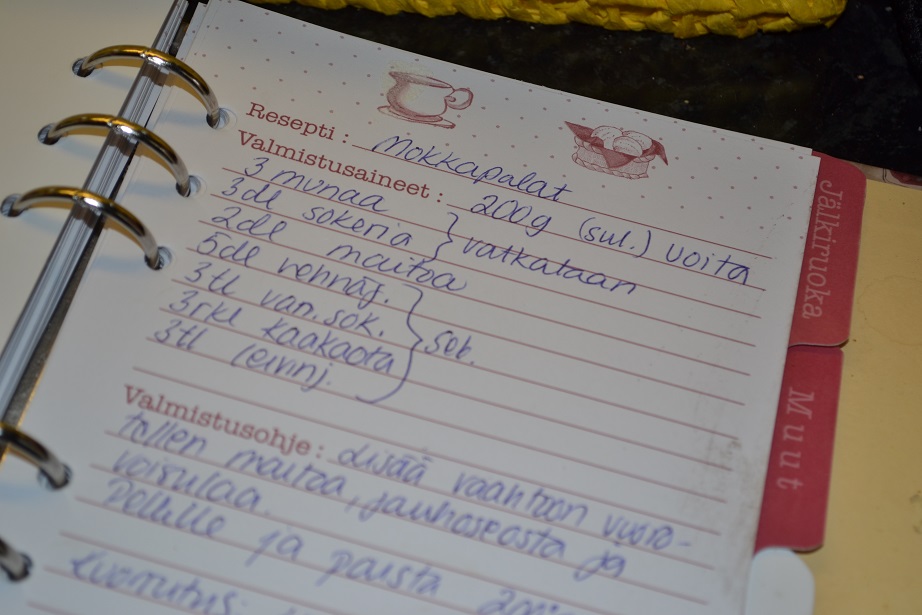 Resepti: Mokkapalat
Valmistusaineet: 200g (sul.) voita
3 munaa
3dl sokeria } vatkataan
2dl maitoa
5dl vehnäj.
3tl van.sok.
3rkl kaakaota } sek.
3tl leivinj.
Valmistusohje: Lisää vaahtoon vuoro-
tellen maitoa, jauhoseosta ja
voisulaa.
Pellille ja paista 200°
Kuorrutus:
Jälkiruoka
Muut